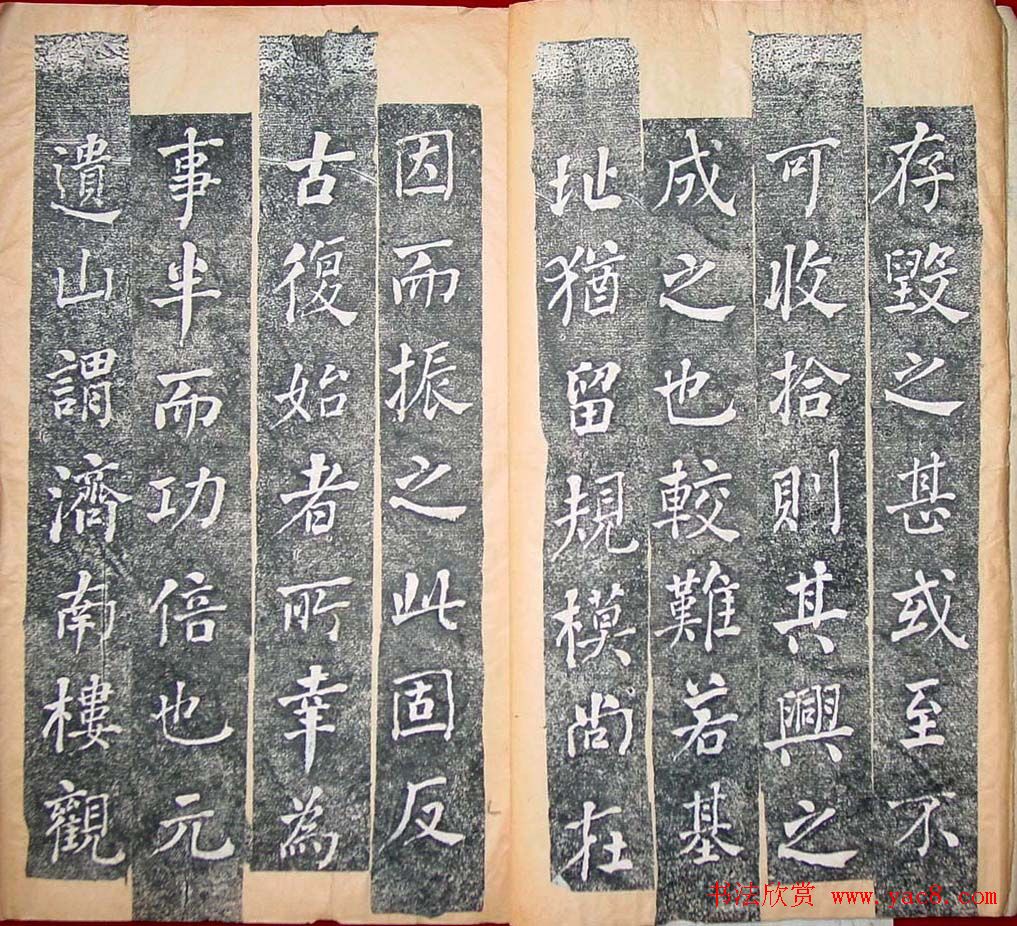 存毀之甚或至不
可收拾則其興之
成之也較難若基
址猶留規模尚在
因而振之此固反
古復始者所幸為
事半而功倍也元
遺山謂濟南樓觀
书法欣赏 www.yac8.com